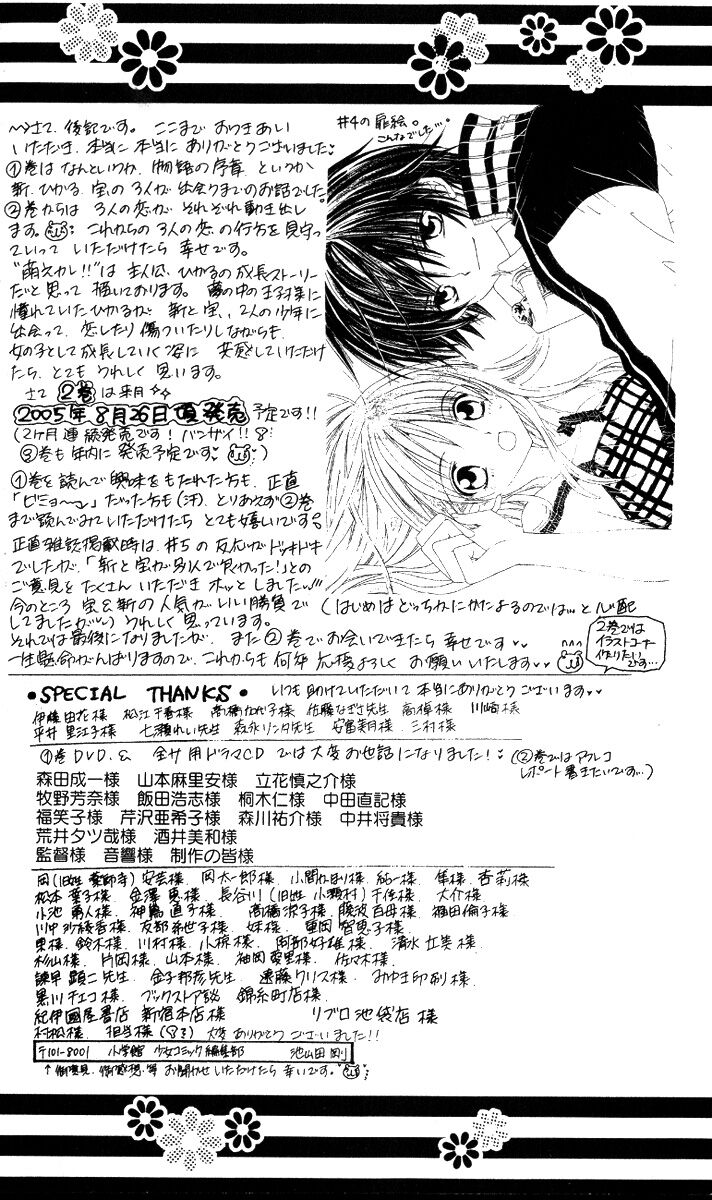 さて、後記です。ここまで おつきあい
いただき、本当に本当に ありがとうございました
①巻は なんというか、物語の序章、というか
新、ひかる、宝の 3人が 出会うまでのお話でした。
②巻からは 3人の恋が それぞれ動き出し
ます。これからの 3人の恋の行方を見守っ
ていって いただけたら 幸せです。
“萌えカレ!!”は 主人公、ひかるの成長ストーリー
だと思って 描いております。夢の中の王子様に
憧れていたひかるが 新と宝、2人の少年に
出会って、恋したり傷ついたりしながらも、
女の子として成長していく姿に 共感していただけ
たら、とても うれしく 思います。
さて ②巻 は来月
2005年8月26日頃発売 予定です!!
(2ヶ月連続発売です! バンザイ!!
③巻も 年内に 発売予定です)
①巻を 読んで 興味を もたれた方も、正直
「ビミョ〜」だった方も(汗)、とりあえず②巻
まで読んでみていただけたら とても嬉しいです。
正直 雑誌掲載時は、#5の 反応が ドッキドキ
でしたが、「新と宝が別人で良かった!」との
ご意見を たくさん いただき ホッと しました
今のところ 宝&新の人気が いい勝負で (はじめは どっちかに かたよるのでは…と 心配
してましたが) うれしく 思っています。
それでは最後になりましたが、また②巻で お会いできたら 幸せです
一生懸命がんばりますので、これからも 何卒 応援よろしく お願いいたします
#4の 扉絵。
こんなでした…。
2巻では
イラストコーナー
作りたい
です…
•SPECIAL THANKS• いつも 助けていただいて 本当にありがとう ございます
伊藤由花様 松江千春様 高橋加代子様 佐藤なぎさ先生 高棹様 川崎様
平井里江子様 七瀬れい先生 森永リンタ先生 安富美月様 三村様
①巻DVD、& 全サ用ドラマCD では大変お世話になりました! (②巻ではアフレコ
レポート書きたいです…)
森田成一様 山本麻里安様 立花慎之介様
牧野芳奈様 飯田浩志様 桐木仁様 中田直記様
福笑子様 芹沢亜希子様 森川祐介様 中井将貴様
荒井タツ哉様 酒井美和様
監督様 音響様 制作の皆様
岡(旧姓 薬師寺)安芸様 岡太一郎様 純一様 隼様 杏莉様
松本 葉子様 金澤 恵様 長谷川 千佳様 大介様
小池 勇人様 神篤 直子様 高橋 沢子様 腰波 百母様 福田倫子様
川中 沙綾香様 友部 希世子様 妹様 重岡 智恵子様
東様 鈴木様 川村様 小椋様 阿部 好雄様 清水 壮英様
杉山様 片岡様 山本様 袖岡 愛里様 佐々木様
諫早 顕二 先生 金子 邦彦 先生 遠藤 クリス様 みゆき印刷様
黒川 チエコ様 ブックストア談 錦糸町店様
紀伊國屋書店 新宿本店様 リブロ 池袋店 様
村松様 担当様 大変 ありがとう ございました!!
〒101-8001 小学館 少女コミック編集部 池山田 剛
↑御意見、御感想 等 お聞かせ いただけたら 幸いです。